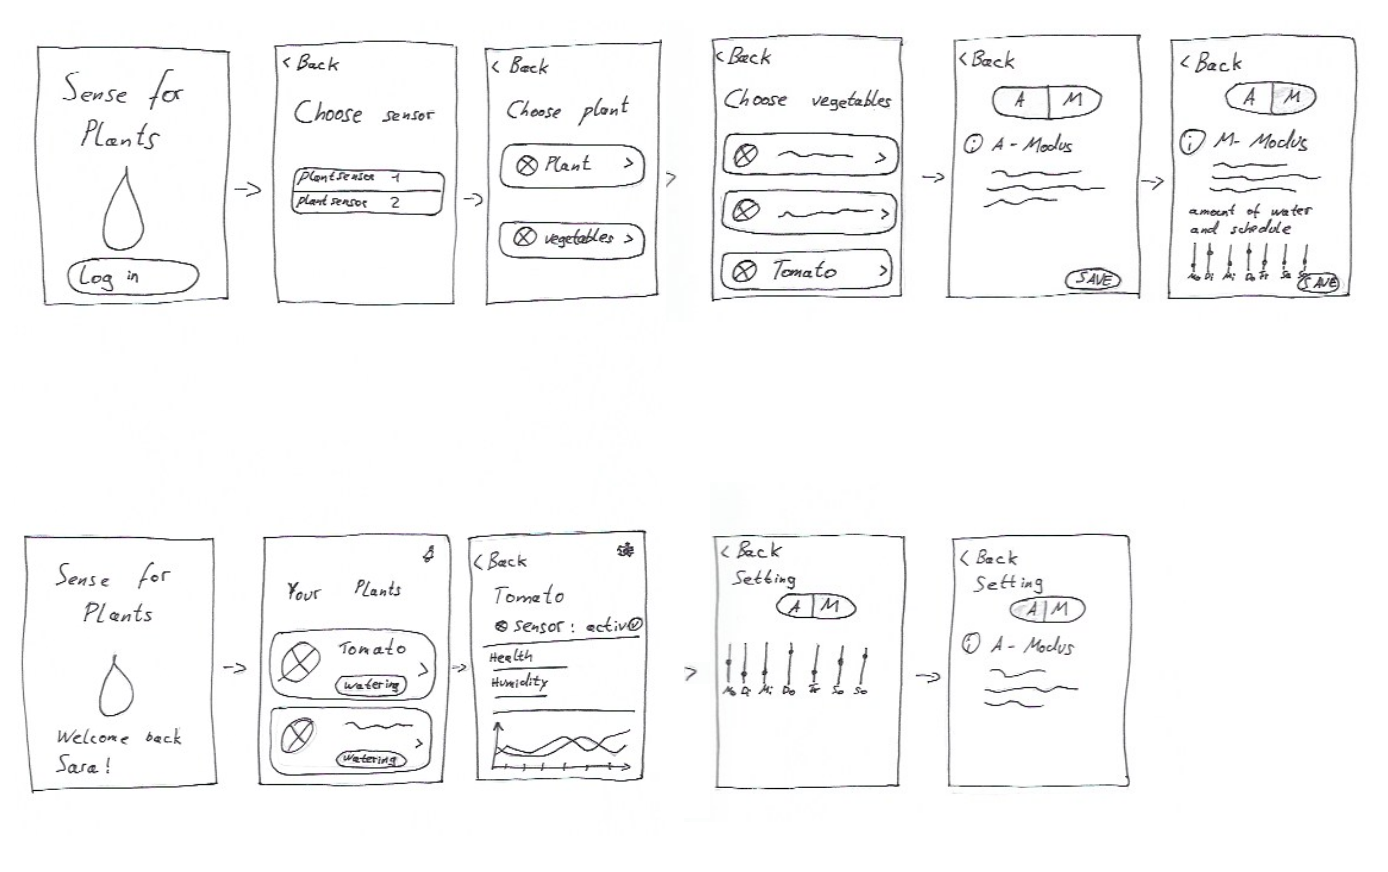 Sense for
Plants
Log in
< Back
Choose sensor
plantsensor 1
plantsensor 2
< Back
Choose plant
Plant >
vegetables >
< Back
Choose vegetables
>
>
Tomato >
< Back
A M
i A - Modus
SAVE
< Back
A M
i M - Modus
amount of water
and schedule
Mo Di Mi Do Fr Sa
SAVE
Sense for
Plants
Welcome back
Sara!
Your Plants
Tomato
watering
>
watering
>
< Back
Tomato
sensor : activ
Health
Humidity
< Back
Setting
A M
Mo Di Mi Do Fr Sa So
< Back
Setting
A M
i A - Modus